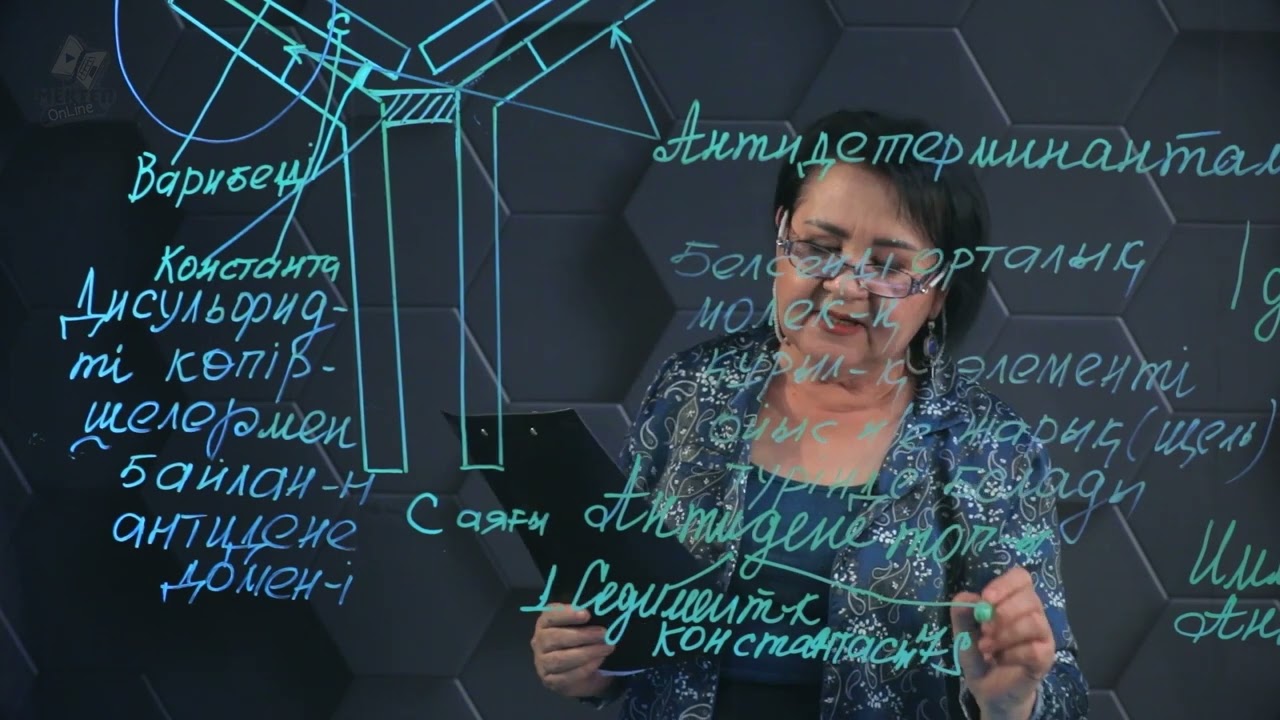 OnLine
С
Варибецi
Константа
Дисульфид-
ті көпір-
шелермен
байлан-н
антидене
домен-і
С аяғы
Антидетерминантам
Белсенді орталық
молек-қ
құрыл-қ элементі
ойыс н/е жарық (щель)
түрінде болады
Антидене топ
1 Седимент-к
константасы 7S